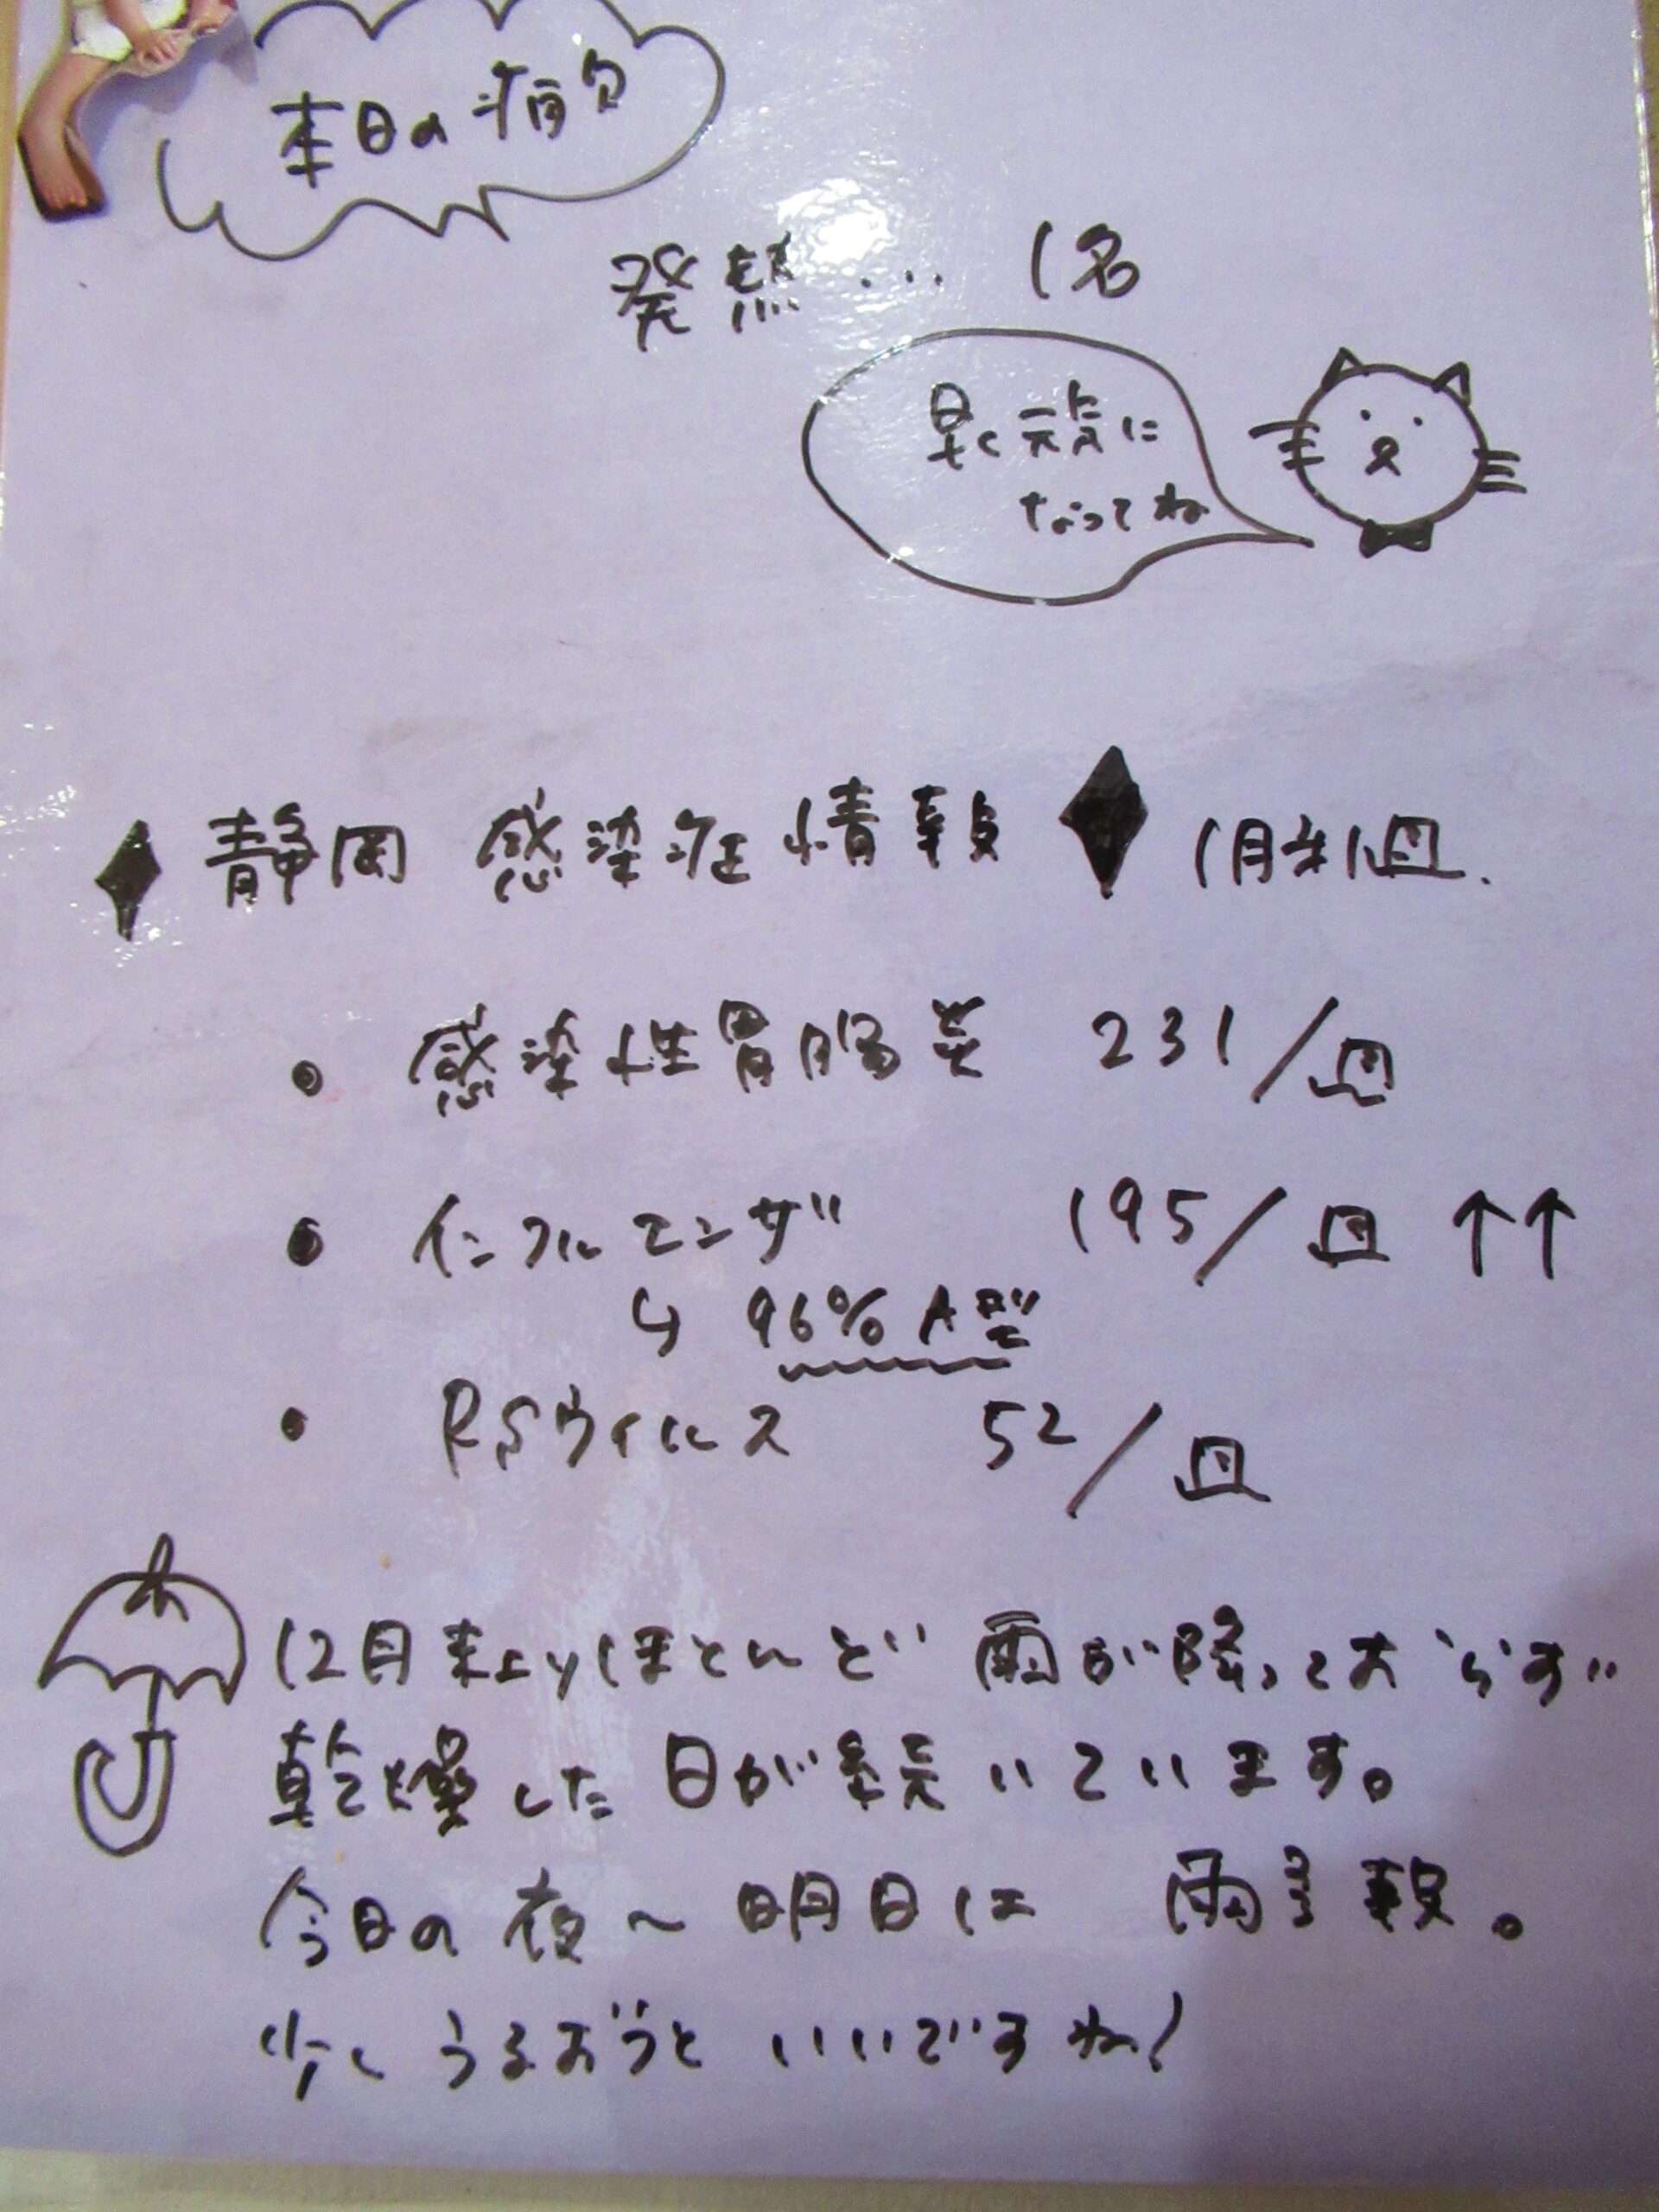 本日の病欠
発熱… 1名
早く元気に
なってね
静岡 感染症情報 1月第1週.
感染性胃腸炎 231/週
インフルエンザ 195/週 ↑↑
↳ 96% A型
RSウイルス 52/週
12月末よりほとんど雨が降っておらず
乾燥した日が続いています。
今日の夜〜明日は 雨予報。
少しうるおうといいですね!